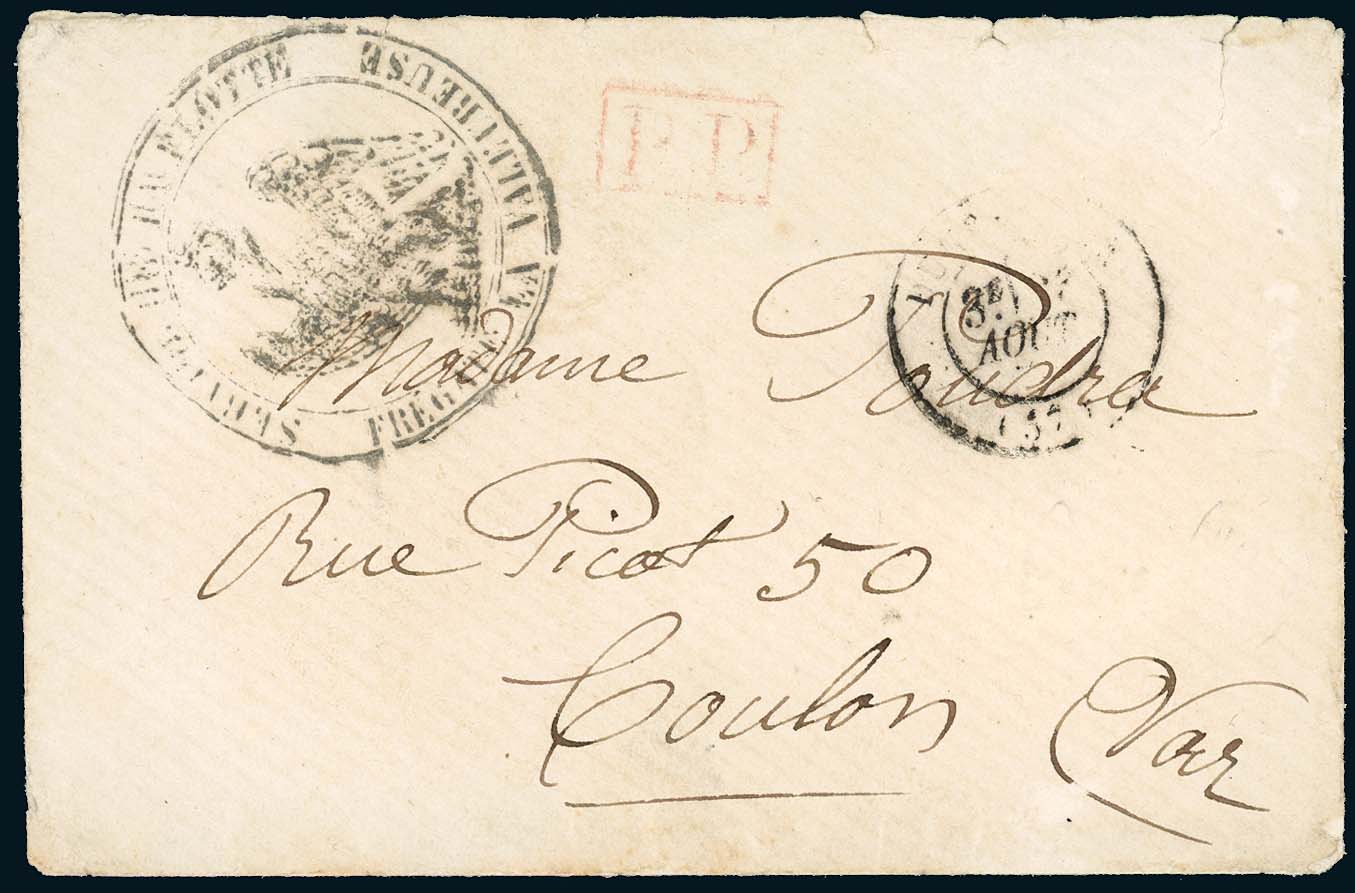 SERVICE DE LA FLOTTE
FRÉGATE LA VALEUREUSE
P.P.
3E
AOUT
(37)
Madame Poudra
Rue Picot 50
Toulon (Var